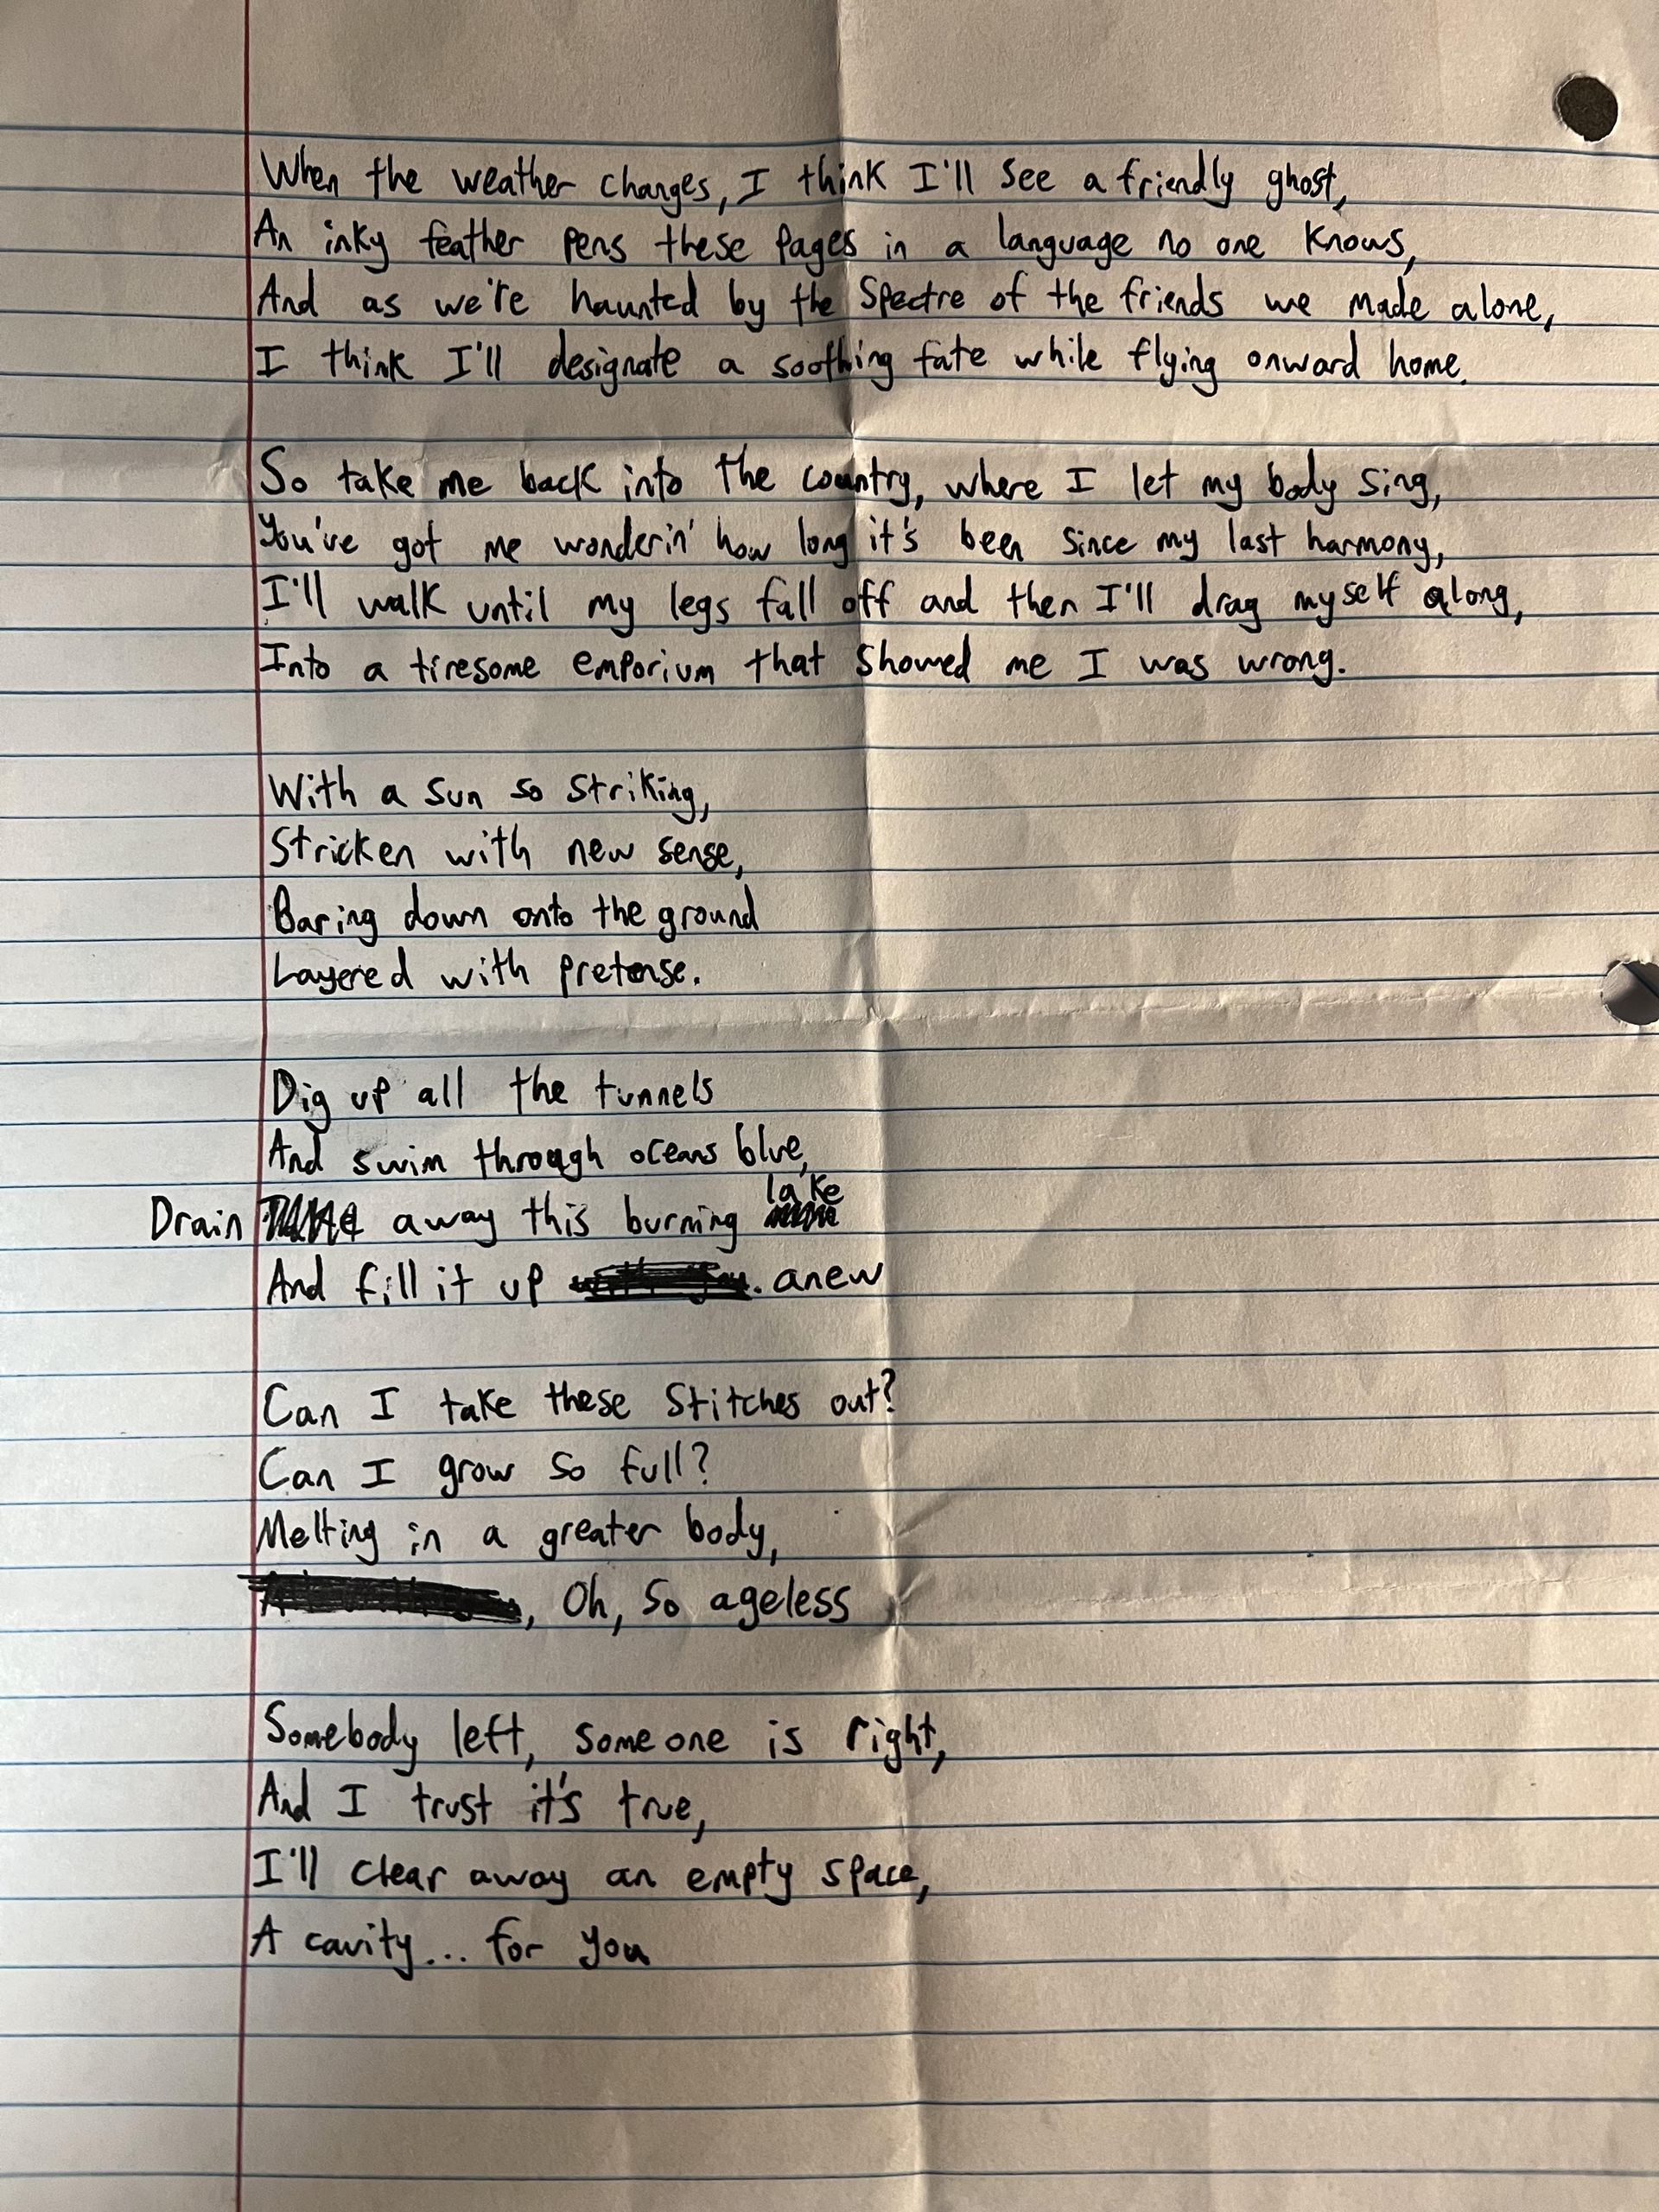 When the weather changes, I think I'll see a friendly ghost,
An inky feather pens these pages in a language no one knows,
And as we're haunted by the spectre of the friends we made alone,
I think I'll designate a soothing fate while flying onward home.
So take me back into the country, where I let my body sing,
You've got me wonderin' how long it's been since my last harmony,
I'll walk until my legs fall off and then I'll drag myself along,
Into a tiresome emporium that showed me I was wrong.
With a sun so striking,
Stricken with new sense,
Baring down onto the ground
Layered with pretense.
Dig up all the tunnels
And swim through oceans blue,
Drain away this burning lake
And fill it up anew
Can I take these stitches out?
Can I grow so full?
Melting in a greater body,
, Oh, so ageless
Somebody left, someone is right,
And I trust it's true,
I'll clear away an empty space,
A cavity... for you